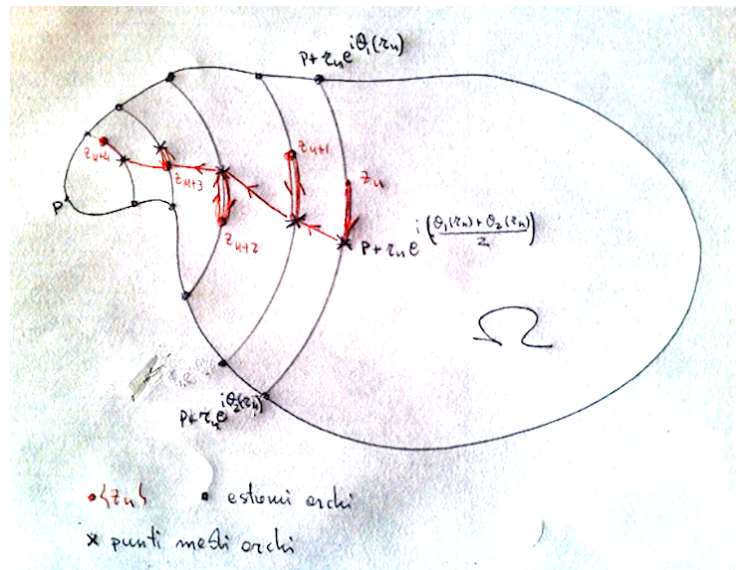 p+r_n e^{iθ_1(r_n)}
z_{n+4}
z_{n+3}
z_{n+1}
z_n
P
z_{n+2}
p+r_n e^{i(\frac{θ_1(r_n)+θ_2(r_n)}{2})}
Ω
p+r_n e^{iθ_2(r_n)}
• {z_n} • estremi archi
× punti medi archi